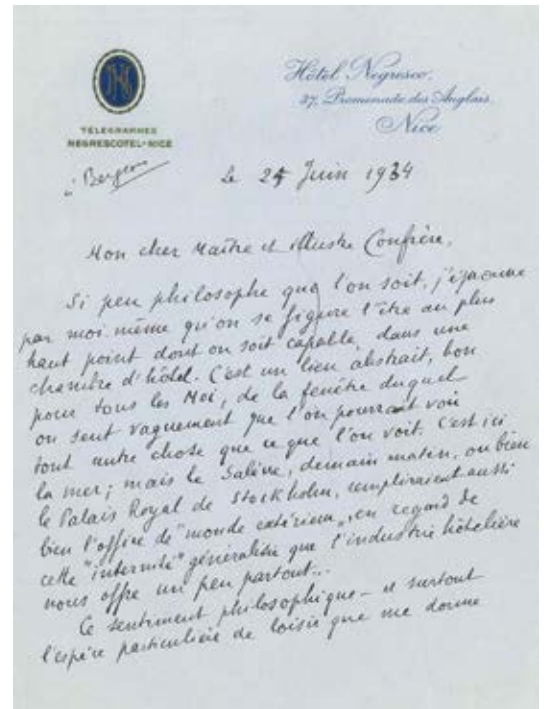 Hôtel Negresco.
37, Promenade des Anglais.
Nice
TÉLÉGRAMMES
NEGRESCOTEL-NICE
à Bergson
le 24 Juin 1934
Mon cher Maître et illustre Confrère,
Si peu philosophe que l'on soit, j'éprouve
par moi-même qu'on se figure l'être au plus
haut point dont on soit capable, dans une
chambre d'hôtel. C'est un lieu abstrait, bon
pour tous les Moi, de la fenêtre duquel
on sent vaguement que l'on pourrait voir
tout autre chose que ce que l'on voit. C'est ici
la mer ; mais le Salève, demain matin, ou bien
le Palais Royal de Stockholm, rempliraient aussi
bien l'office de "monde extérieur", en regard de
cette "internité" généralisée que l'industrie hôtelière
nous offre un peu partout...
Ce sentiment philosophique - et surtout
l'espèce particulière de loisir que me donne